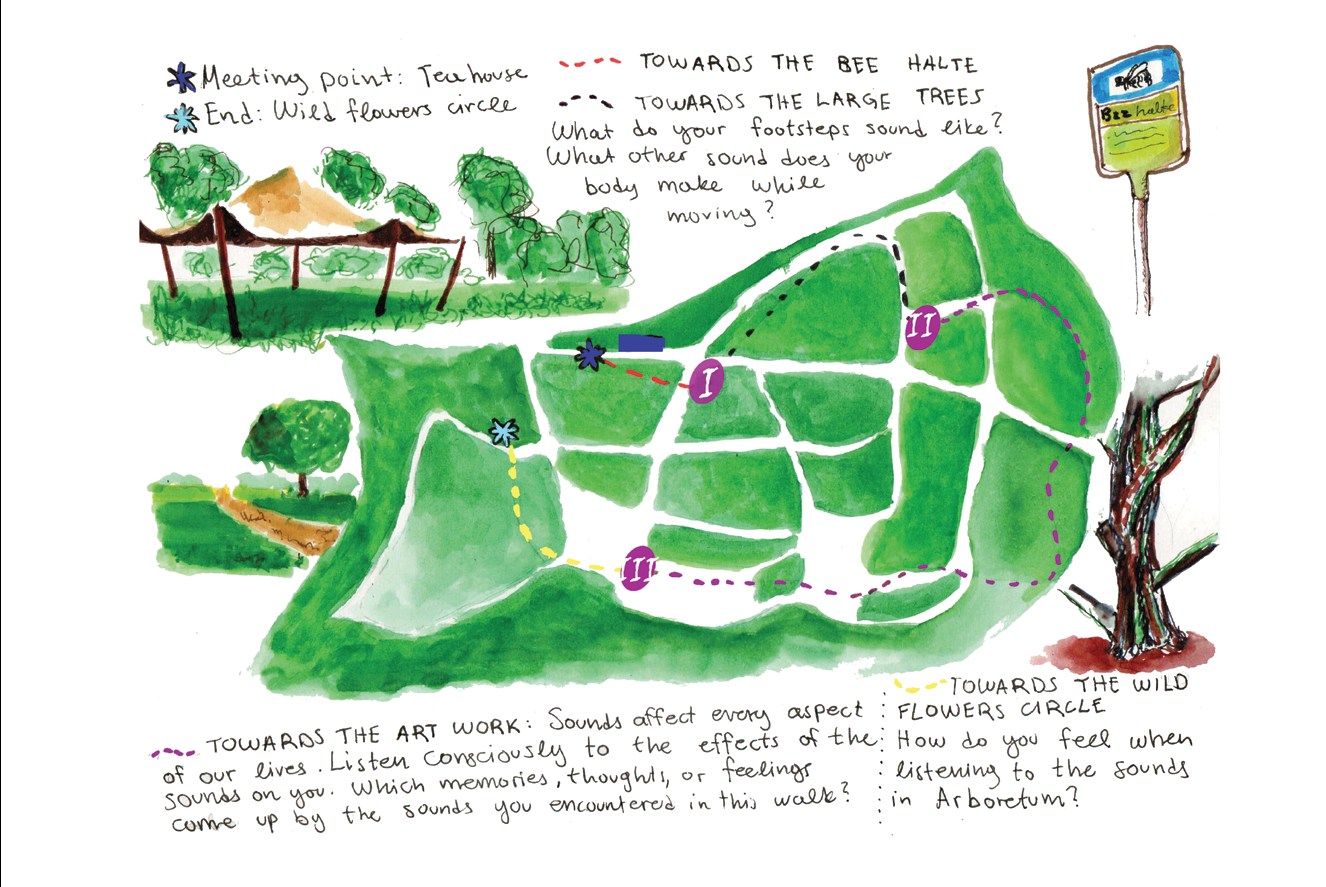 Meeting point: Tea house
End: Wild flowers circle
TOWARDS THE BEE HALTE
TOWARDS THE LARGE TREES
What do your footsteps sound like?
What other sound does your
body make while
moving?
Bzz halte
I
II
III
TOWARDS THE ART WORK: Sounds affect every aspect
of our lives. Listen Consciously to the effects of the
sounds on you. Which memories, thoughts, or feelings
come up by the sounds you encountered in this walk?
TOWARDS THE WILD
FLOWERS CIRCLE
How do you feel when
listening to the sounds
in Arboretum?